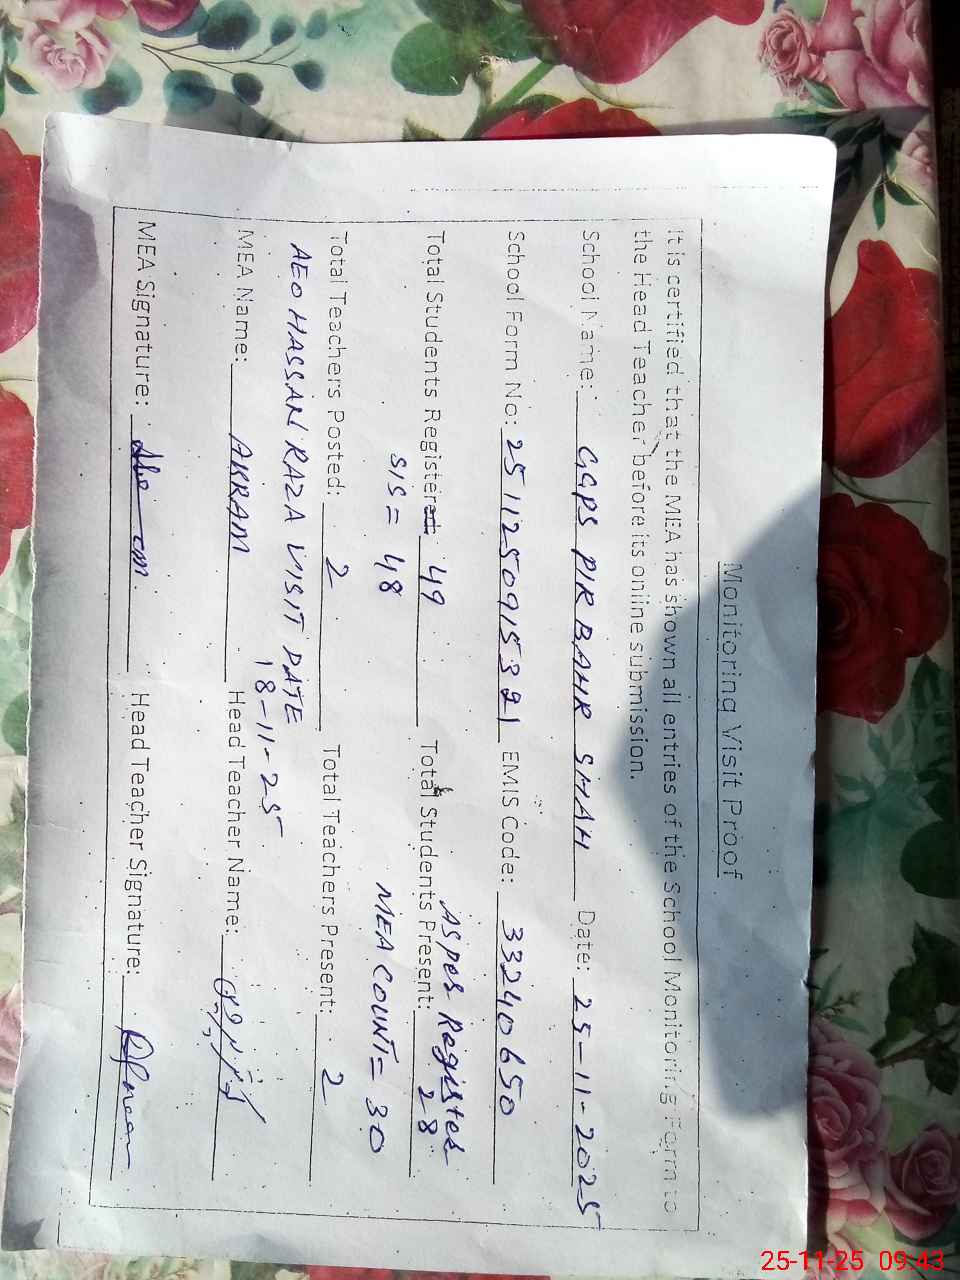 Monitoring Visit Proof
It is certified that the MEA has shown all entries of the School Monitoring Form to
the Head Teacher before its online submission.
School Name: GGPS PIR BAHR SHAH Date: 25-11-2025
School Form No: 2511250915321 EMIS Code: 33240650
As per Register
Total Students Registered: 49 Total Students Present: 28
SIS = 48 MEA COUNT = 30
Total Teachers Posted: 2 Total Teachers Present: 2
AEO HASSAN RAZA VISIT DATE
18-11-25
MEA Name: AKRAM Head Teacher Name:
MEA Signature: Head Teacher Signature:
25-11-25 09:43